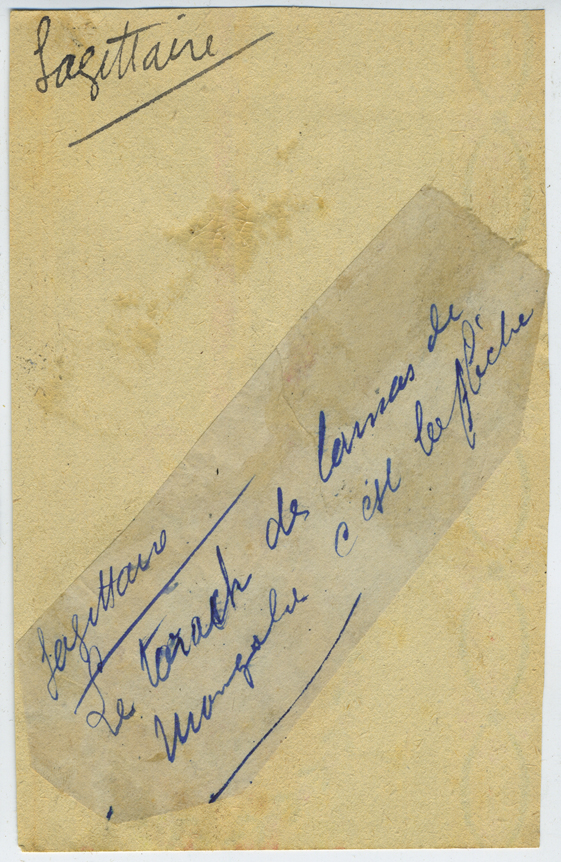 Sagittaire
Sagittaire
Le tarach des lamas de
Mongolie c'est la flèche